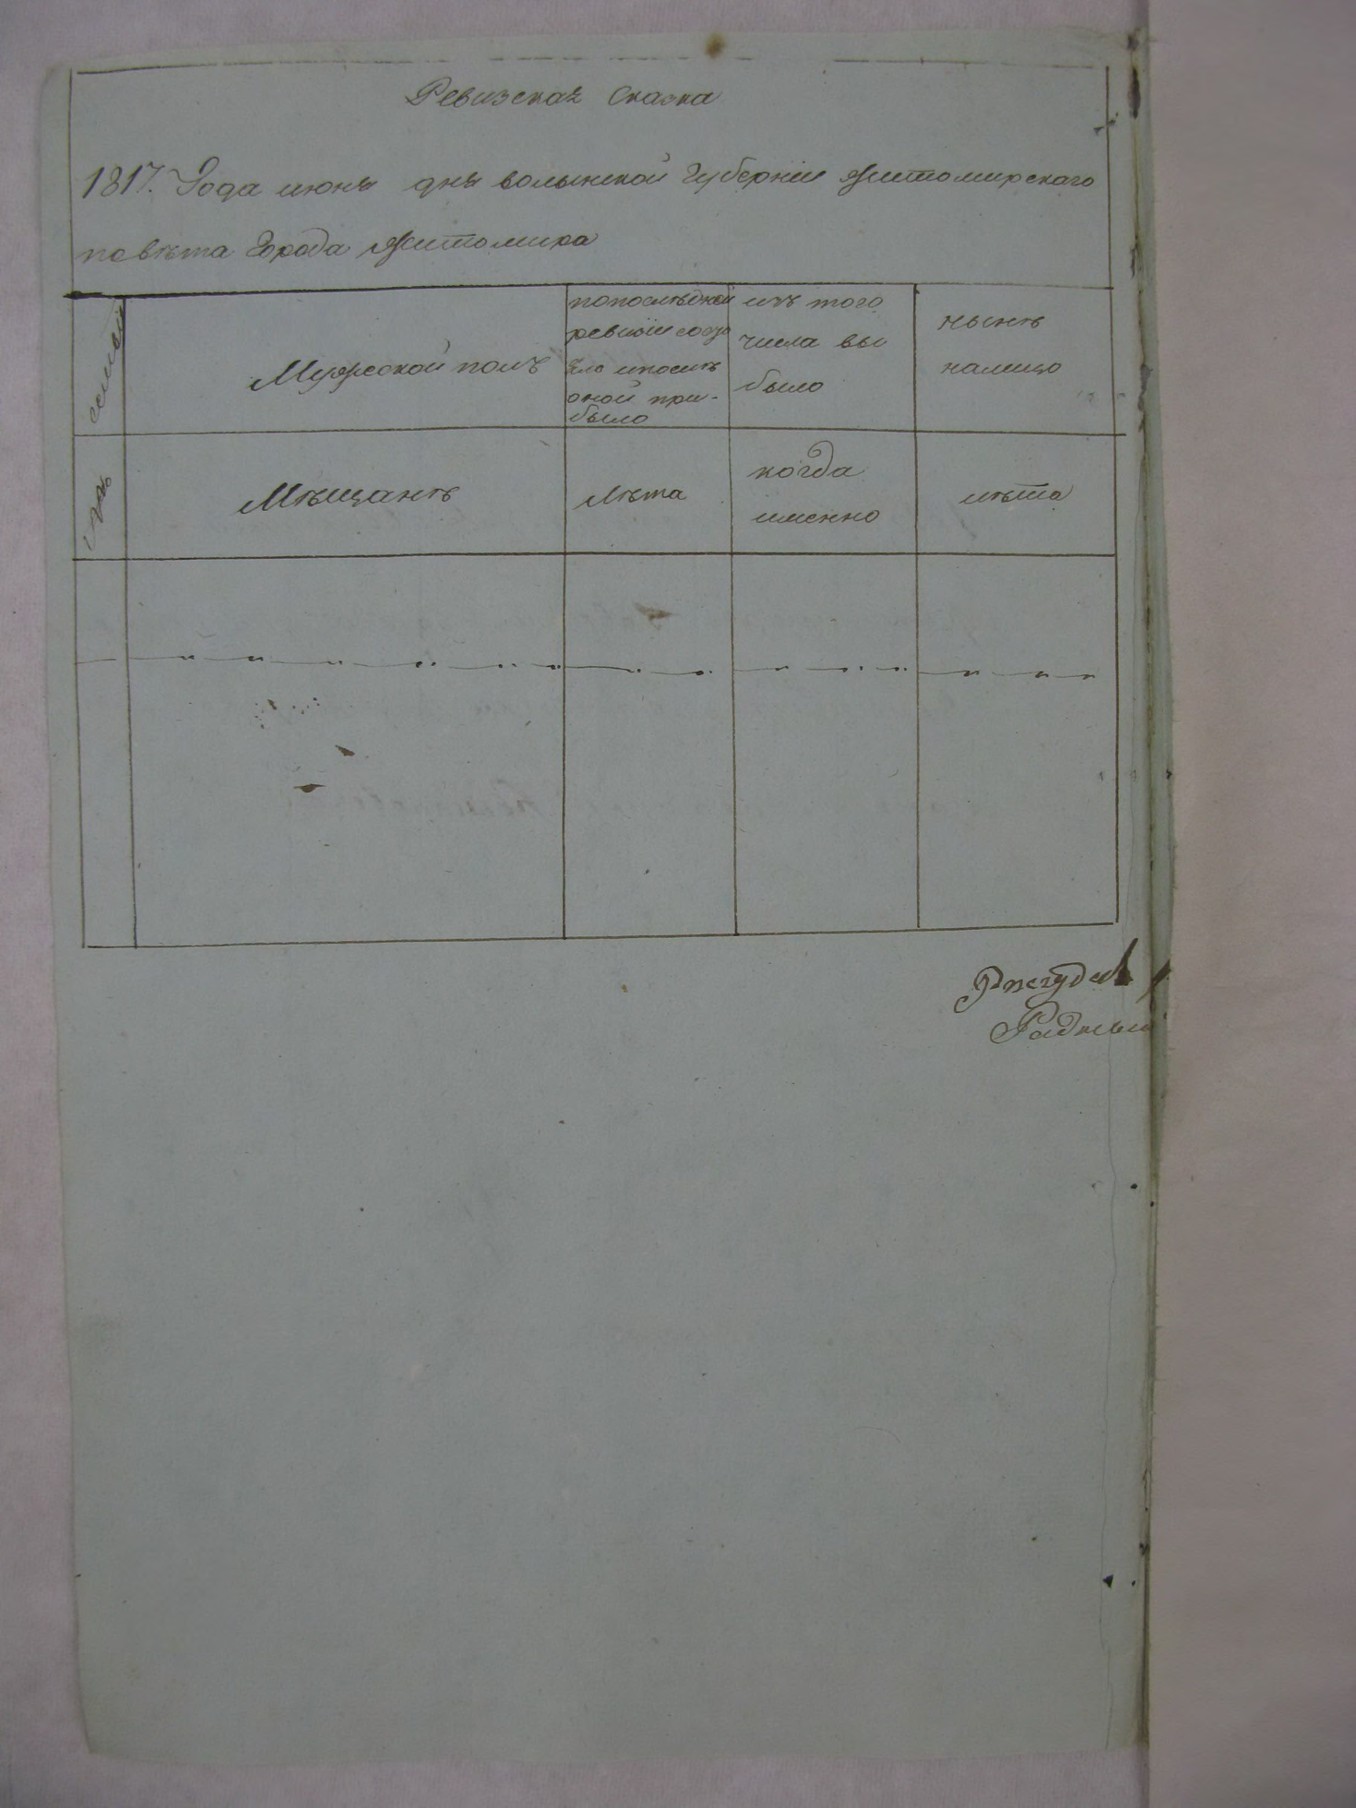 Ревизская Сказка
1817. Года июня дня волынской Губернии Житомирского
повѣта Города Житомира
семьи
Мужеской полъ
попослѣдней
ревизіи состо
яло ипослѣ
оной при-
было
изъ того
числа вы
было
нынѣ
налицо
Мѣщанъ
лѣта
когда
именно
лѣта